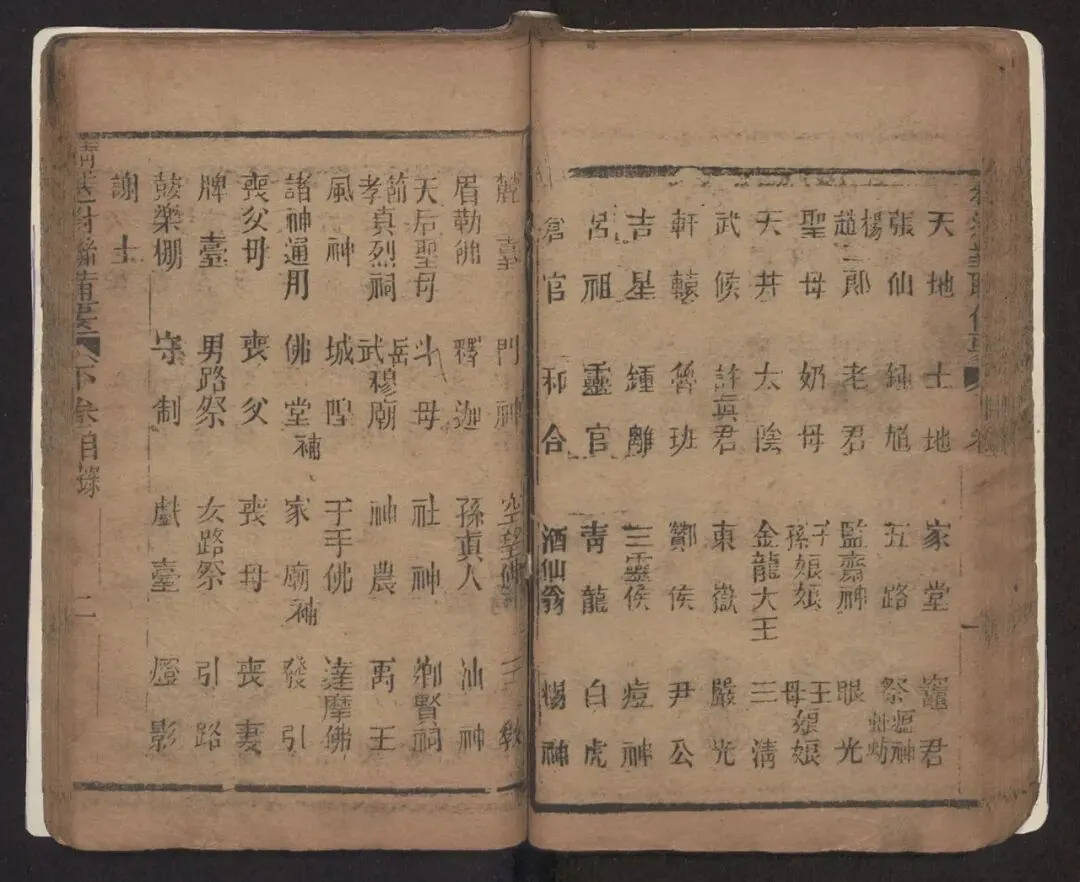 天地 土地 家堂 竈君
張仙 鍾馗 五路 祭瘟神蚄
楊趙二郎 老君 監齋神 眼光
聖母 奶母 子孫娘娘 王母娘娘
天井 太陰 金龍大王 三清
武候 許真君 東嶽 嚴光
軒轅 魯班 酇侯 尹公
吉星 鍾離 三靈侯 痘神
呂祖 靈官 青龍 白虎
倉官 和合 酒仙翁 楊神
臺 門神 空望佛 三教
眉勒佛 釋迦 孫真人 山神
天后聖母 斗母 社神 鄉賢祠
節孝真烈祠 岳武穆廟 神農 禹王
風神 城隍 千手佛 達摩佛
諸神通用 佛堂補 家廟補 發引
喪父母 喪父 喪母 喪妻
牌臺 男路祭 女路祭 引路
鼓樂棚 守制 戲臺 燈影
謝土
對聯備要 下 目錄 二